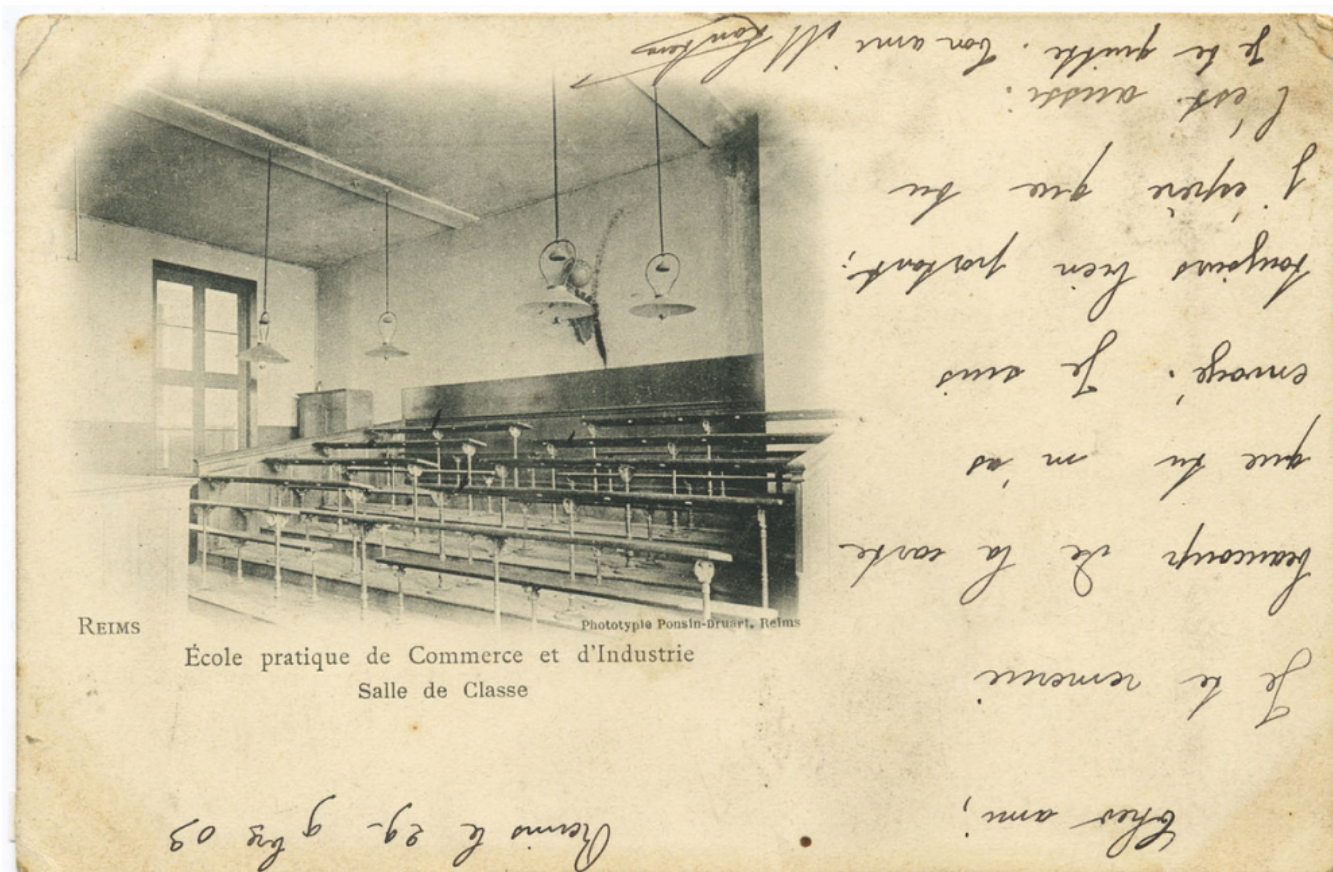 REIMS
Phototypie Ponsin-Druart, Reims
École pratique de Commerce et d'Industrie
Salle de Classe
Reims le 29- 9bre 03
Cher ami,
Je te remercie
beaucoup de la carte
que tu m'as
envoyé. Je suis
toujours bien portant;
j'espère que tu
l'est aussi.
Je te quitte. Ton ami M